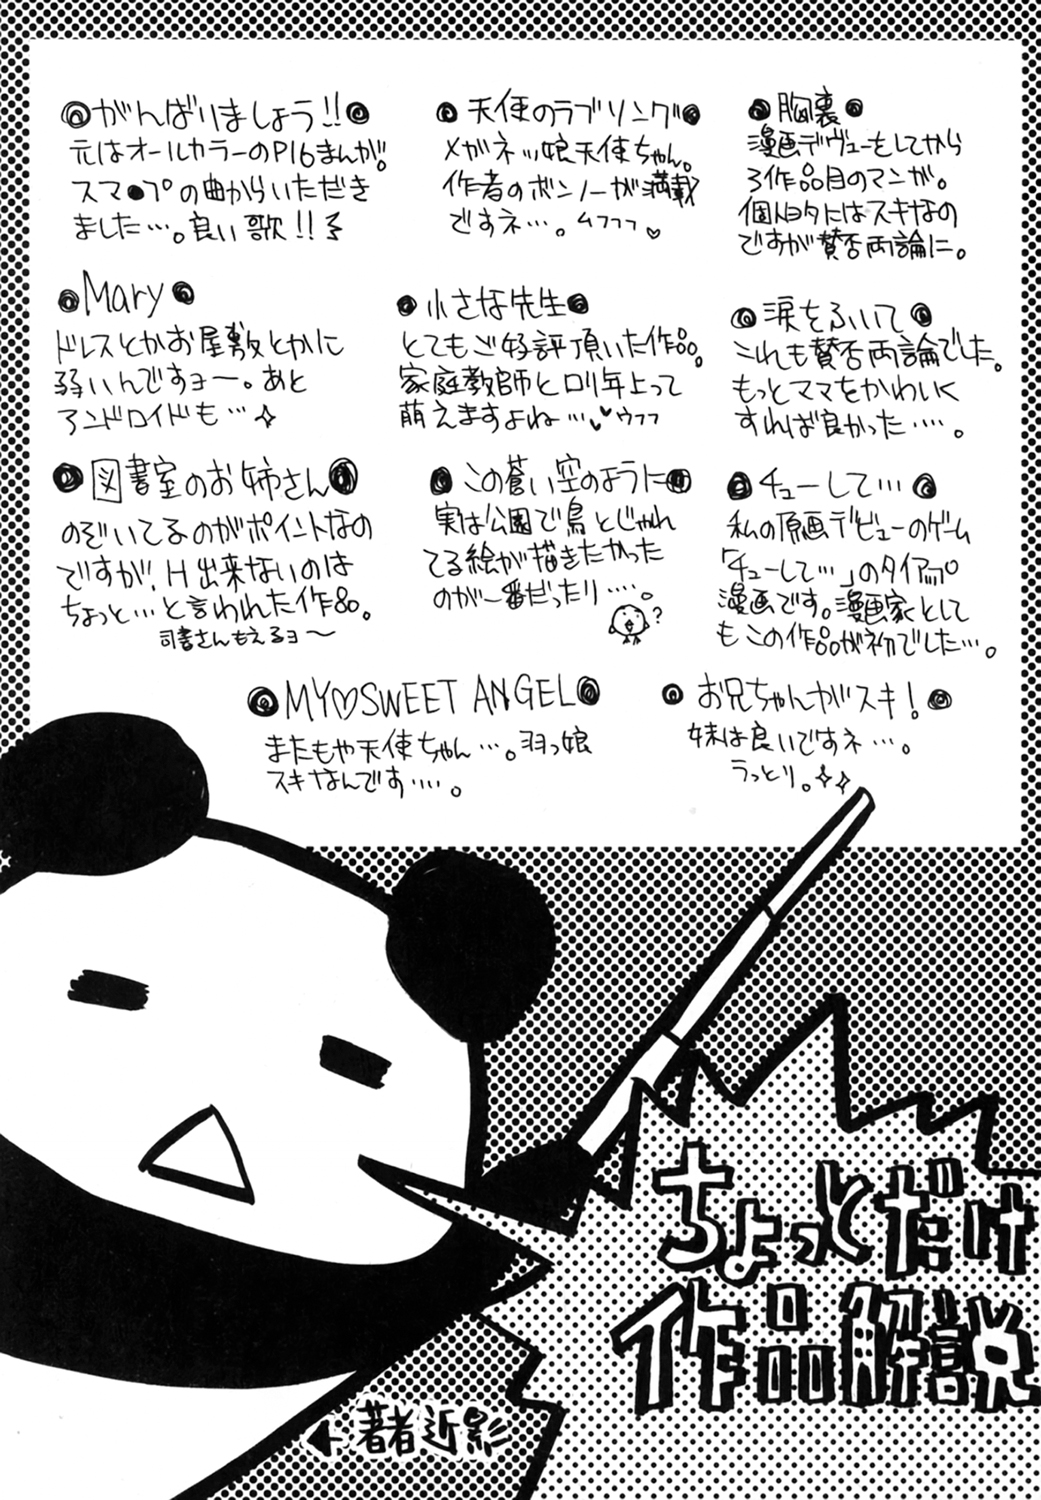 がんばりましょう!!
元はオールカラーのP16まんが。
スマ●プの曲からいただき
ました…。良い歌!!
天使のラブソング
メガネッ娘天使ちゃん。
作者のボンノーが満載
ですネ…。ムフフフ♡
胸裏
漫画デヴューをしてから
3作品目のマンガ。
個人的にはスキなの
ですが賛否両論に。
Mary
ドレスとかお屋敷とかに
弱いんですョー。あと
アンドロイドも…
小さな先生
とてもご好評頂いた作品。
家庭教師とロリ年上って
萌えますよね…♥ウフフ
涙をふいて
これも賛否両論でした。
もっとママをかわいく
すれば良かった‥‥。
図書室のお姉さん
のぞいてるのがポイントなの
ですが!H出来ないのは
ちょっと…と言われた作品。
司書さんもえるヨ～
この蒼い空のように
実は公園で鳥とじゃれ
てる絵が描きたかった
のが一番だったり‥‥。
?
チューして…
私の原画デビューのゲーム
「チューして…」のタイアップ
漫画です。漫画家として
もこの作品が初でした…。
MY♡SWEET ANGEL
またもや天使ちゃん…。羽っ娘
スキなんです‥‥。
お兄ちゃんがスキ!
妹は良いですネ…。
うっとり。
ちょっとだけ
作品解説
著者近影